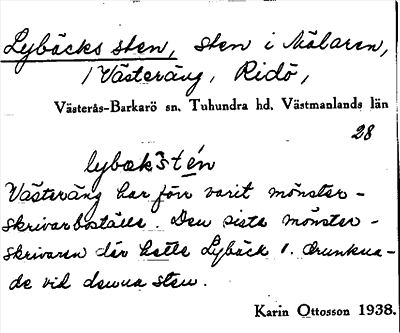 Lybäcks sten, sten i Mälaren,
/ Västeräng, Ridö,
Västerås-Barkarö sn. Tuhundra hd. Västmanlands län
28
lybæk`stén
Västeräng har förr varit mönster-
skrivarboställe. Den sista mönster-
skrivaren där hette Lybäck l. drunkna-
de vid denna sten.
Karin Ottosson 1938.